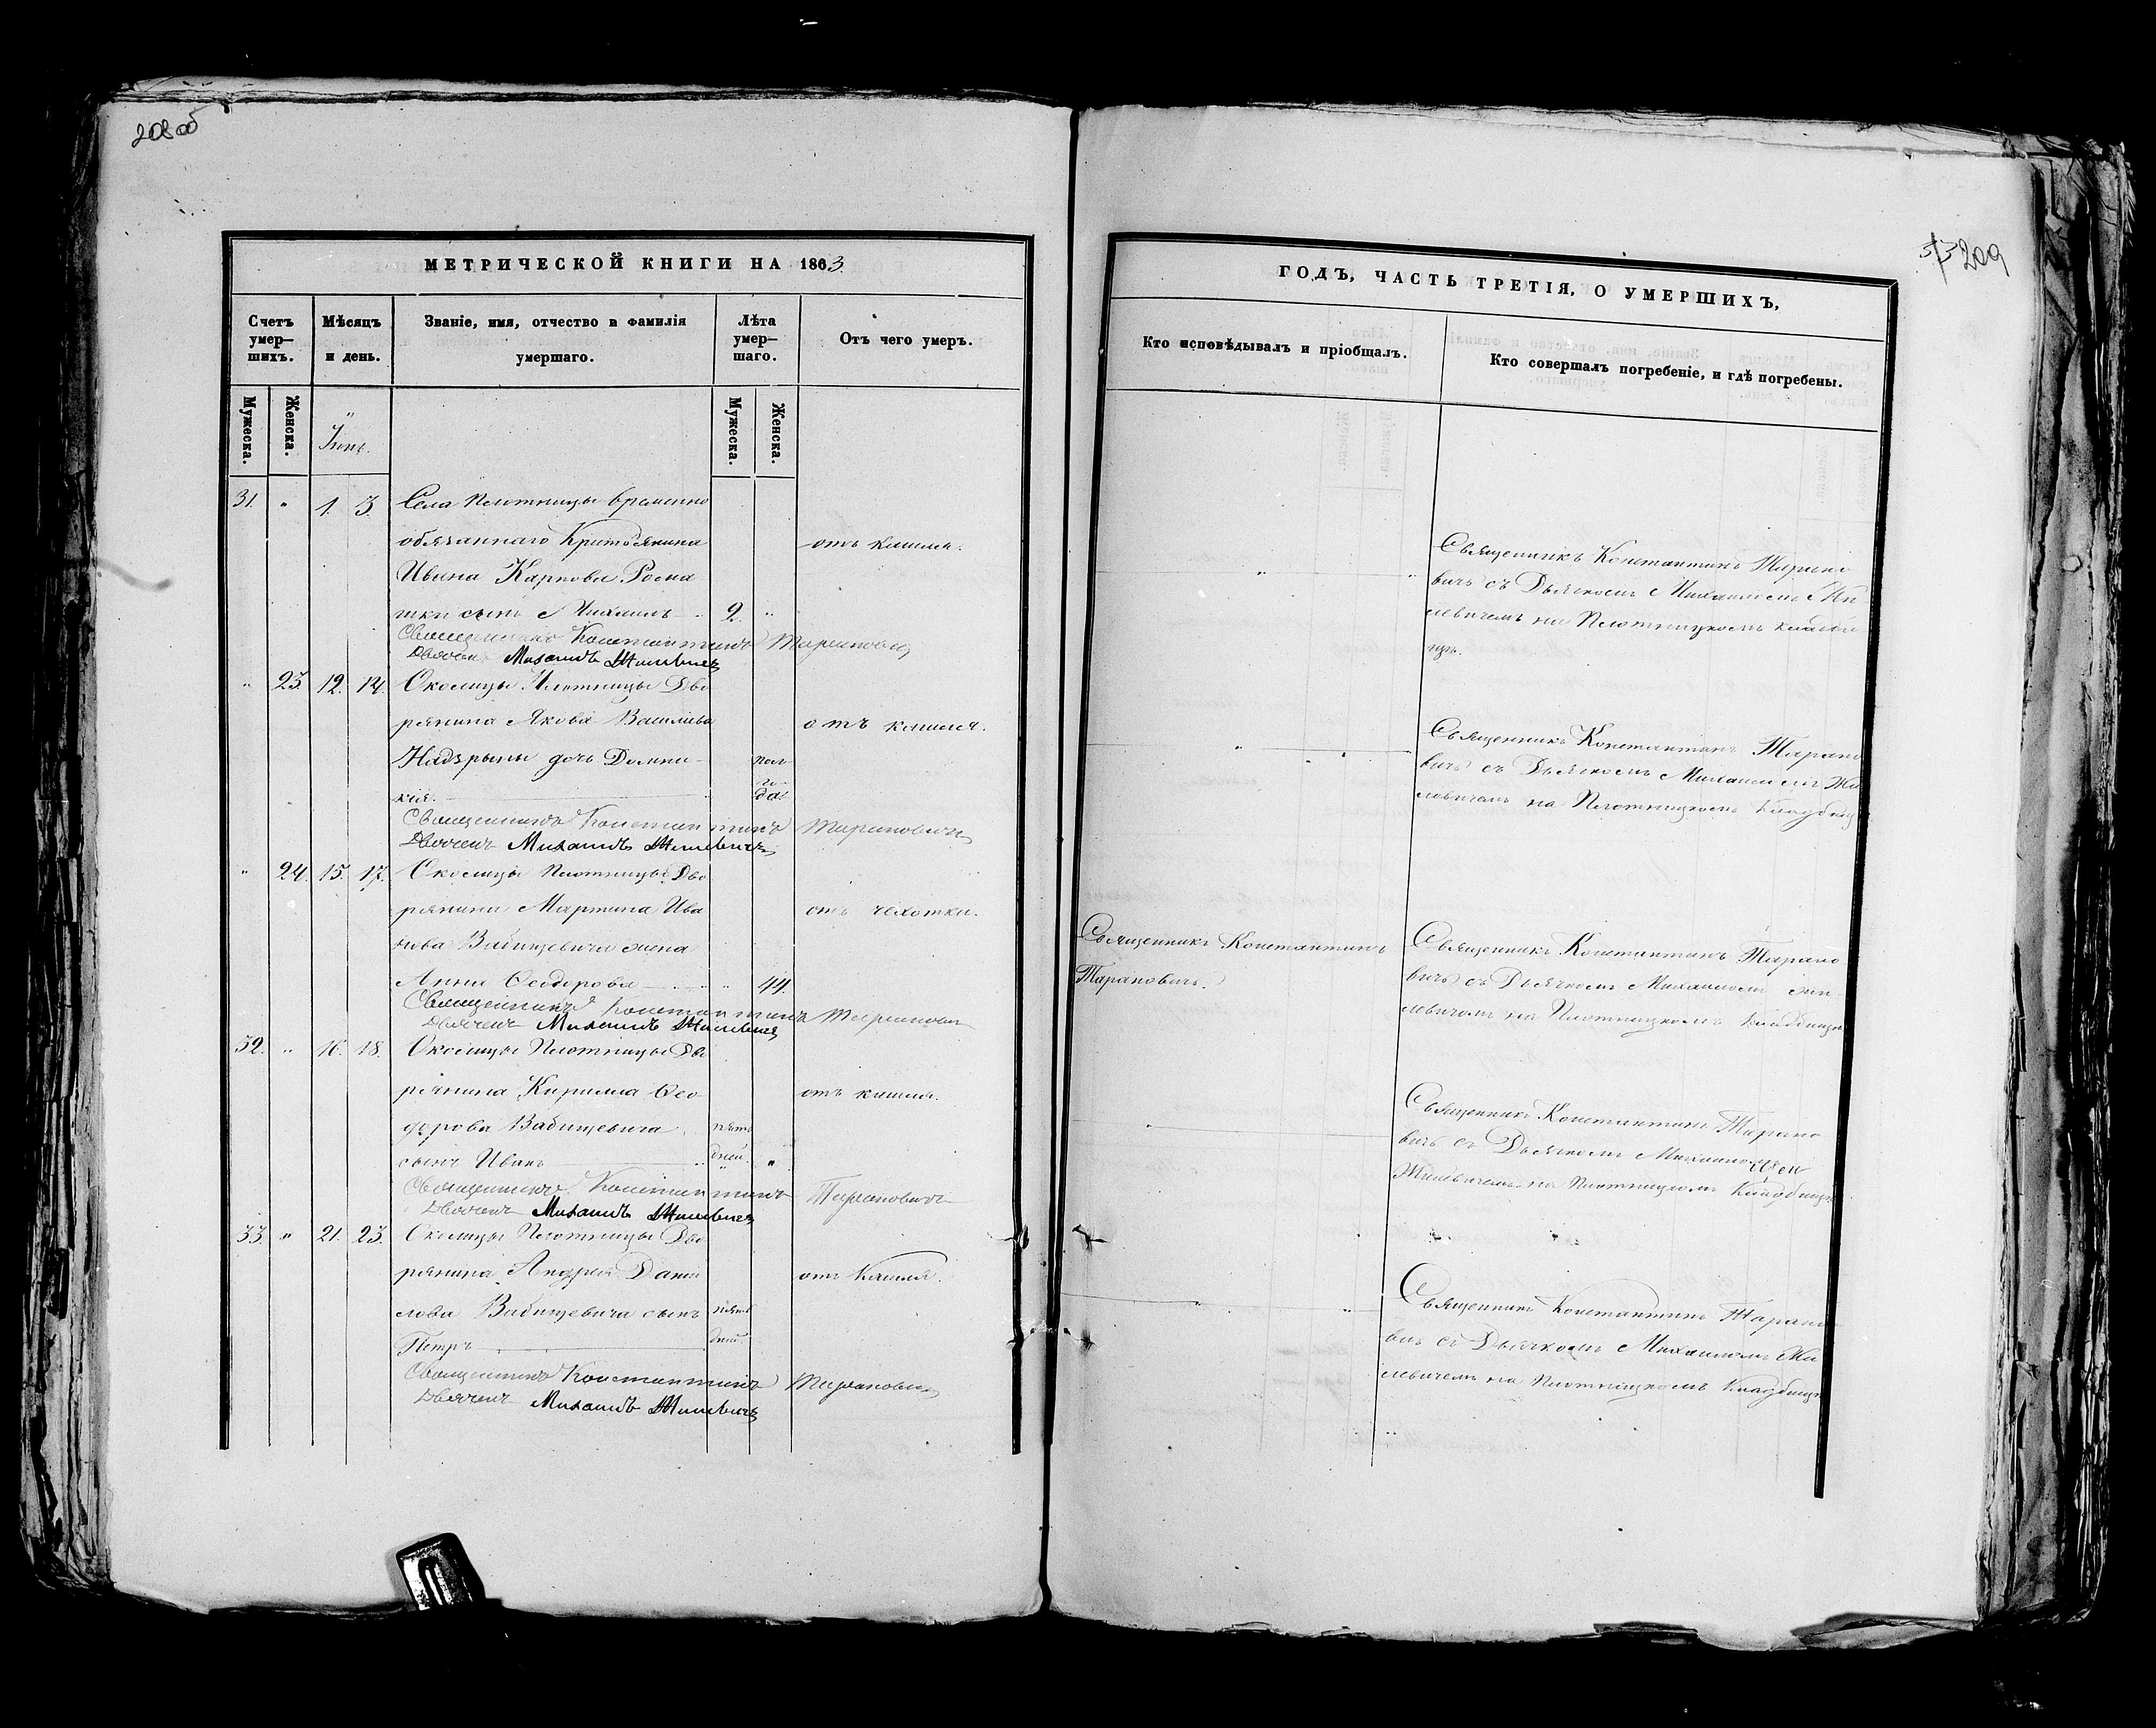 208 об
МЕТРИЧЕСКОЙ КНИГИ НА 1863.
Счетъ умер—шихъ.
Мѣсяцъ и день.
Званіе, имя, отчество и фамилія умершаго.
Лѣта умер—шаго.
Отъ чего умеръ.
Мужеска.
Женска.
"
Іюнь.
Мужеска.
Женска.
31. " 1. 3. Села Плотницы временно
обязаннаго Крестьянина отъ кашля.
Ивана Карпова
тки сынъ Михаилъ 2. "
Священникъ Константинъ Тарановичъ
Дьячекъ Михаилъ Жилевичъ
" 23. 12. 14. Околицы Плотницы Дво
рянина Якова Васильева отъ кашля.
дочь Домни- пол
го-
кія. да
Священникъ Константинъ Тарановичъ
Дьячекъ Михаилъ Жилевичъ
" 24. 15. 17. Околицы Плотницы Дво
рянина Мартина Ива отъ чахотки.
нова Бабищевича жена
Анна Ѳеодорова " 44.
Священникъ Константинъ Тарановичъ
Дьячекъ Михаилъ Жилевичъ
32. " 16. 18. Околицы Плотницы Дво
рянина Кирилла Ѳео отъ кашля.
дорова Бабищевича пять
сынъ Иванъ дней. "
Священникъ Константинъ Тарановичъ
Дьячекъ Михаилъ Жилевичъ
33. " 21. 23. Околицы Плотницы Дво
рянина Андрея Дани отъ Кашля.
лова Бабищевича сынъ пять
Петръ дней.
Священникъ Константинъ Тарановичъ
Дьячекъ Михаилъ Жилевичъ
209
ГОДЪ, ЧАСТЬ ТРЕТІЯ, О УМЕРШИХЪ,
Кто исповѣдывалъ и пріобщалъ.
Кто совершалъ погребеніе, и гдѣ погребены.
Священникъ Константинъ Тарано
" " вичъ съ Дьячкомъ Михаиломъ Жи
левичемъ на Плотницкомъ кладби
щѣ.
Священникъ Константинъ Тарано
" " вичъ съ Дьячкомъ Михаиломъ Жи
левичемъ на Плотницкомъ Кладбищѣ
Священникъ Константинъ Священникъ Константинъ Тарано
Тарановичъ. вичъ съ Дьячкомъ Михаиломъ Жи
левичемъ на Плотницкомъ Кладбищѣ
Священникъ Константинъ Тарано
" вичъ съ Дьячкомъ Михаиломъ
Жилевичемъ на Плотницкомъ Кладбищѣ
Священникъ Константинъ Тарано
" " вичъ съ Дьячкомъ Михаиломъ Жи
левичемъ на Плотницкомъ Кладбищѣ